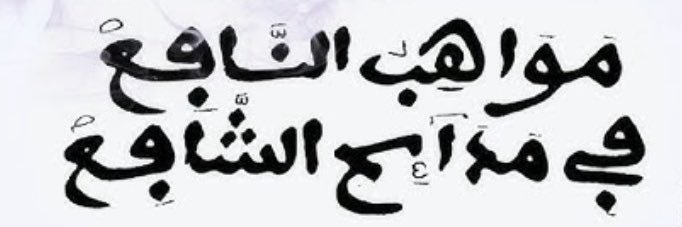 مَوَاهِبُ النَّافِعْ
فِي مَدَآئِحِ الشَّافِعْ